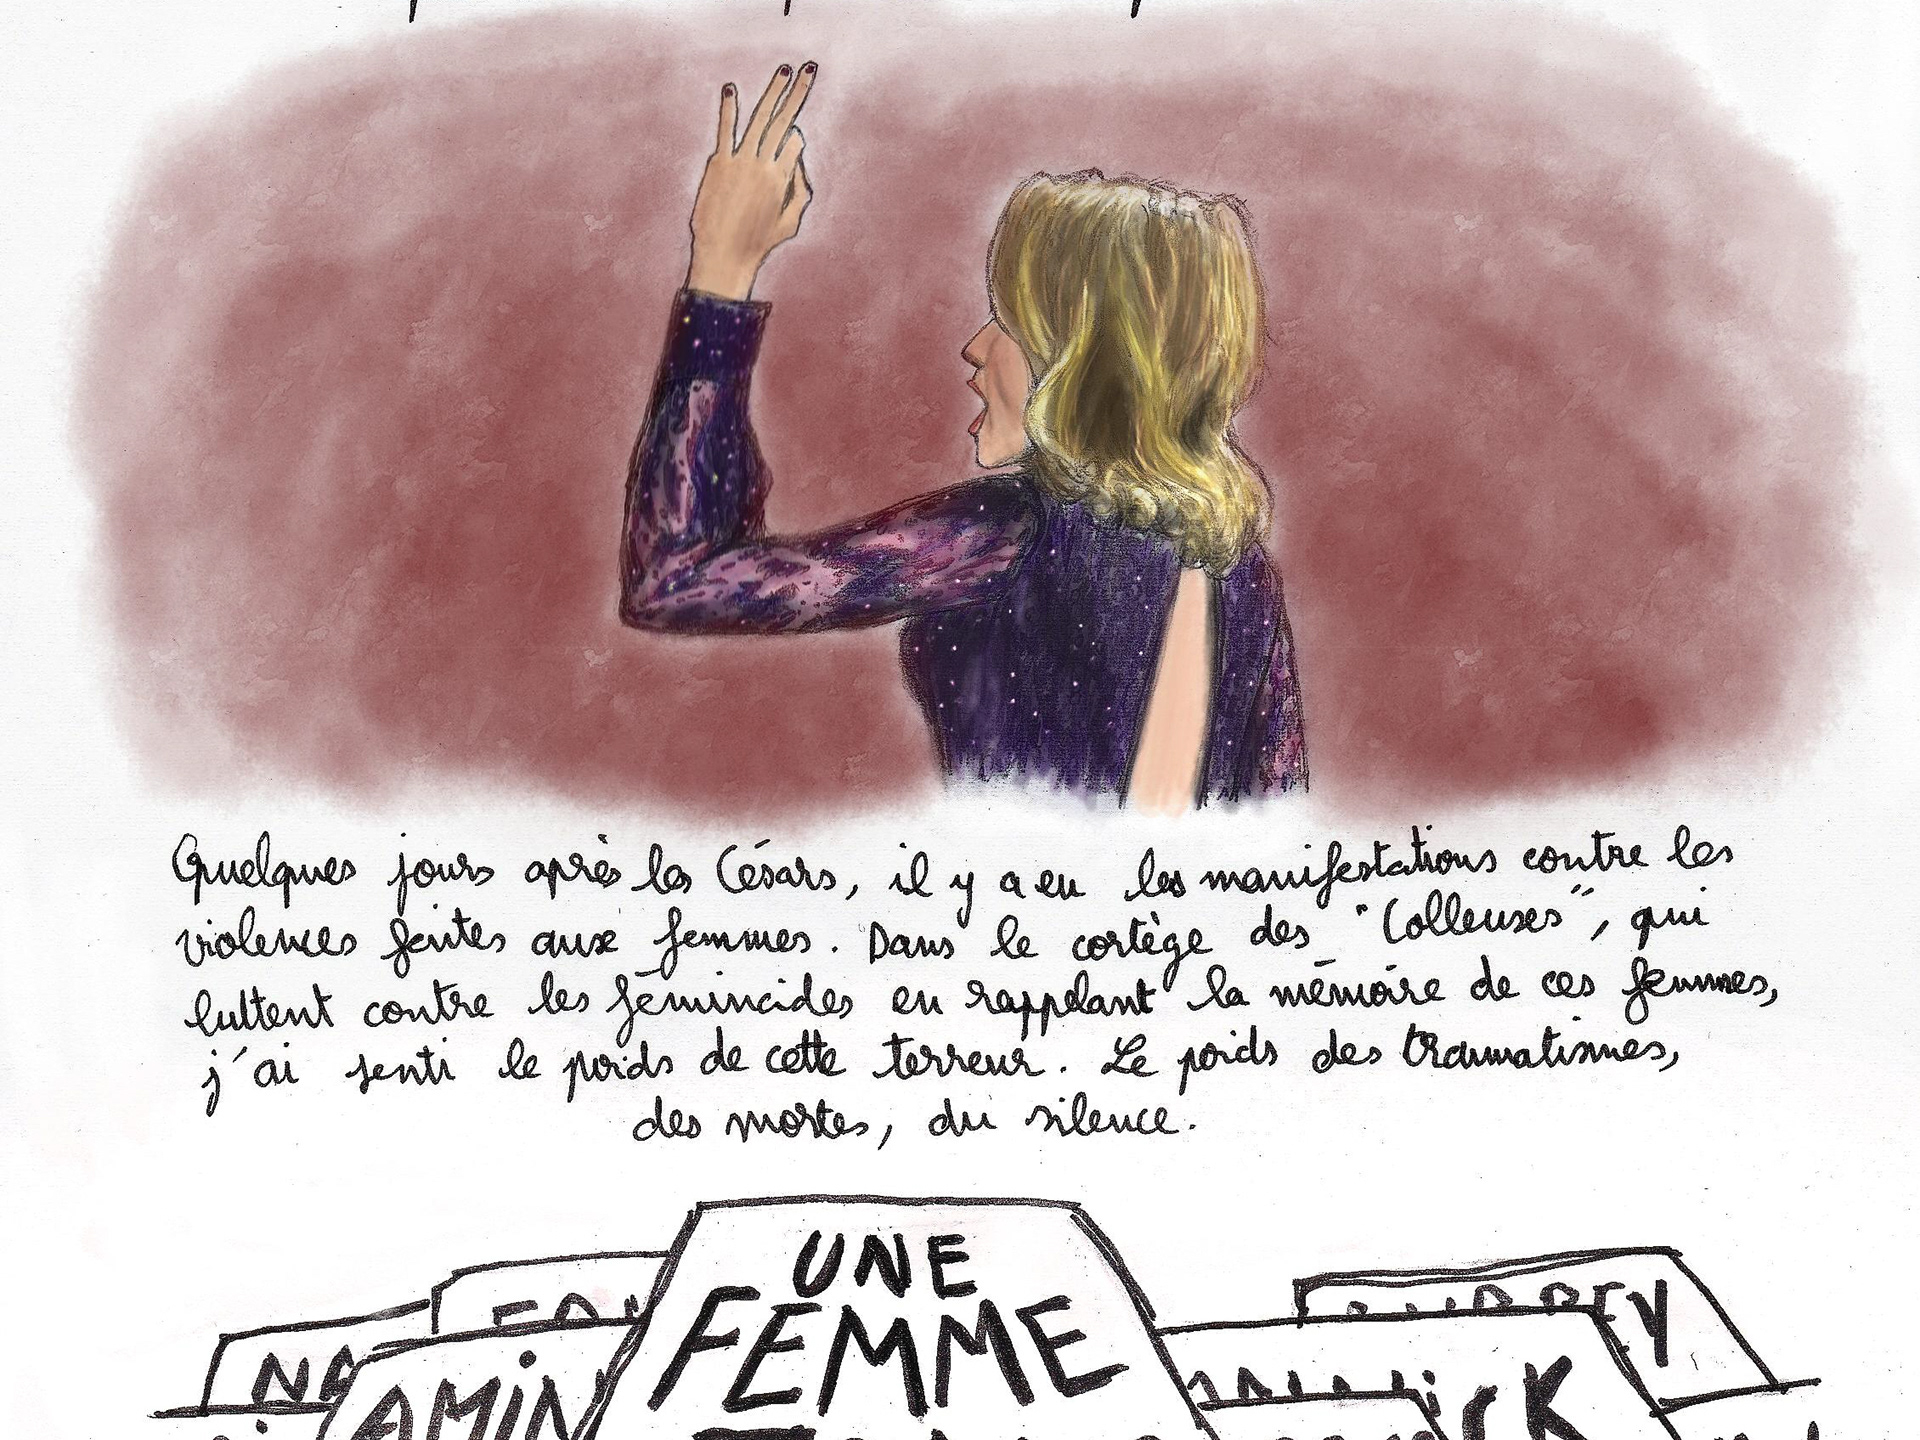 Quelques jours après les Césars, il y a eu les manifestations contre les
violences faites aux femmes. Dans le cortège des "Colleuses", qui
luttent contre les féminicides en rappelant la mémoire de ces femmes,
j'ai senti le poids de cette terreur. Le poids des traumatismes,
des mortes, du silence.
UNE
FEMME